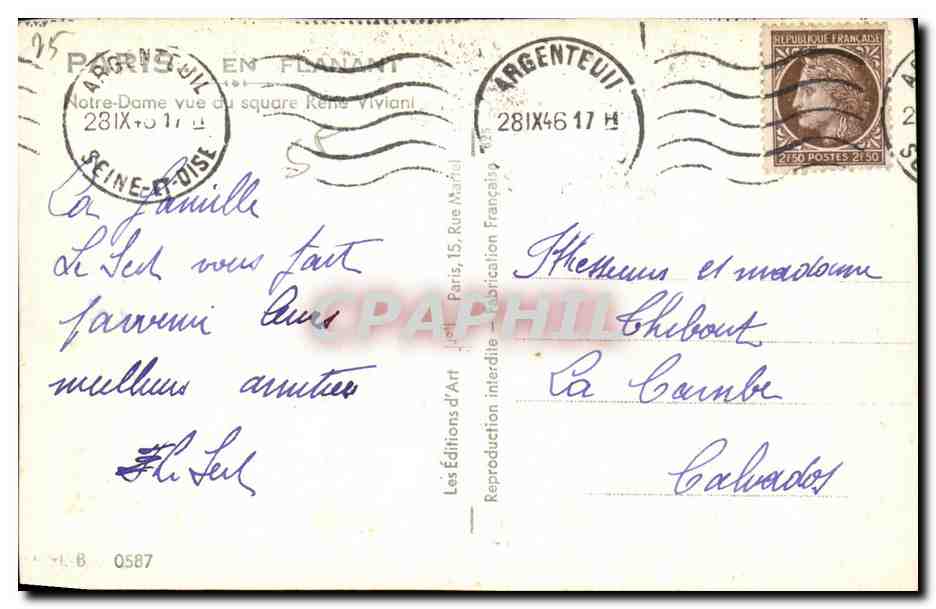 25
PARIS EN FLANANT
Notre-Dame vue du square René Viviani
ARGENTEUIL
28 IX 46 17 H
SEINE-ET-OISE
ARGENTEUIL
28 IX 46 17 H
REPUBLIQUE FRANÇAISE
2F50 POSTES 2F50
La famille
Le Sest vous fait
parvenir leurs
meilleurs amitiés
Le Sest
Messieurs et madame
Thibout
La Cambe
Calvados
Les Éditions d'Art Paris, 15, Rue Martel
Reproduction interdite — Fabrication Française
CPAPHIL
B 0587